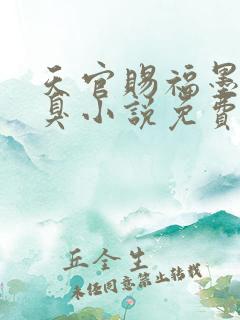 天官賜福墨
臭小說免費
丘全生
未经同意禁止转载